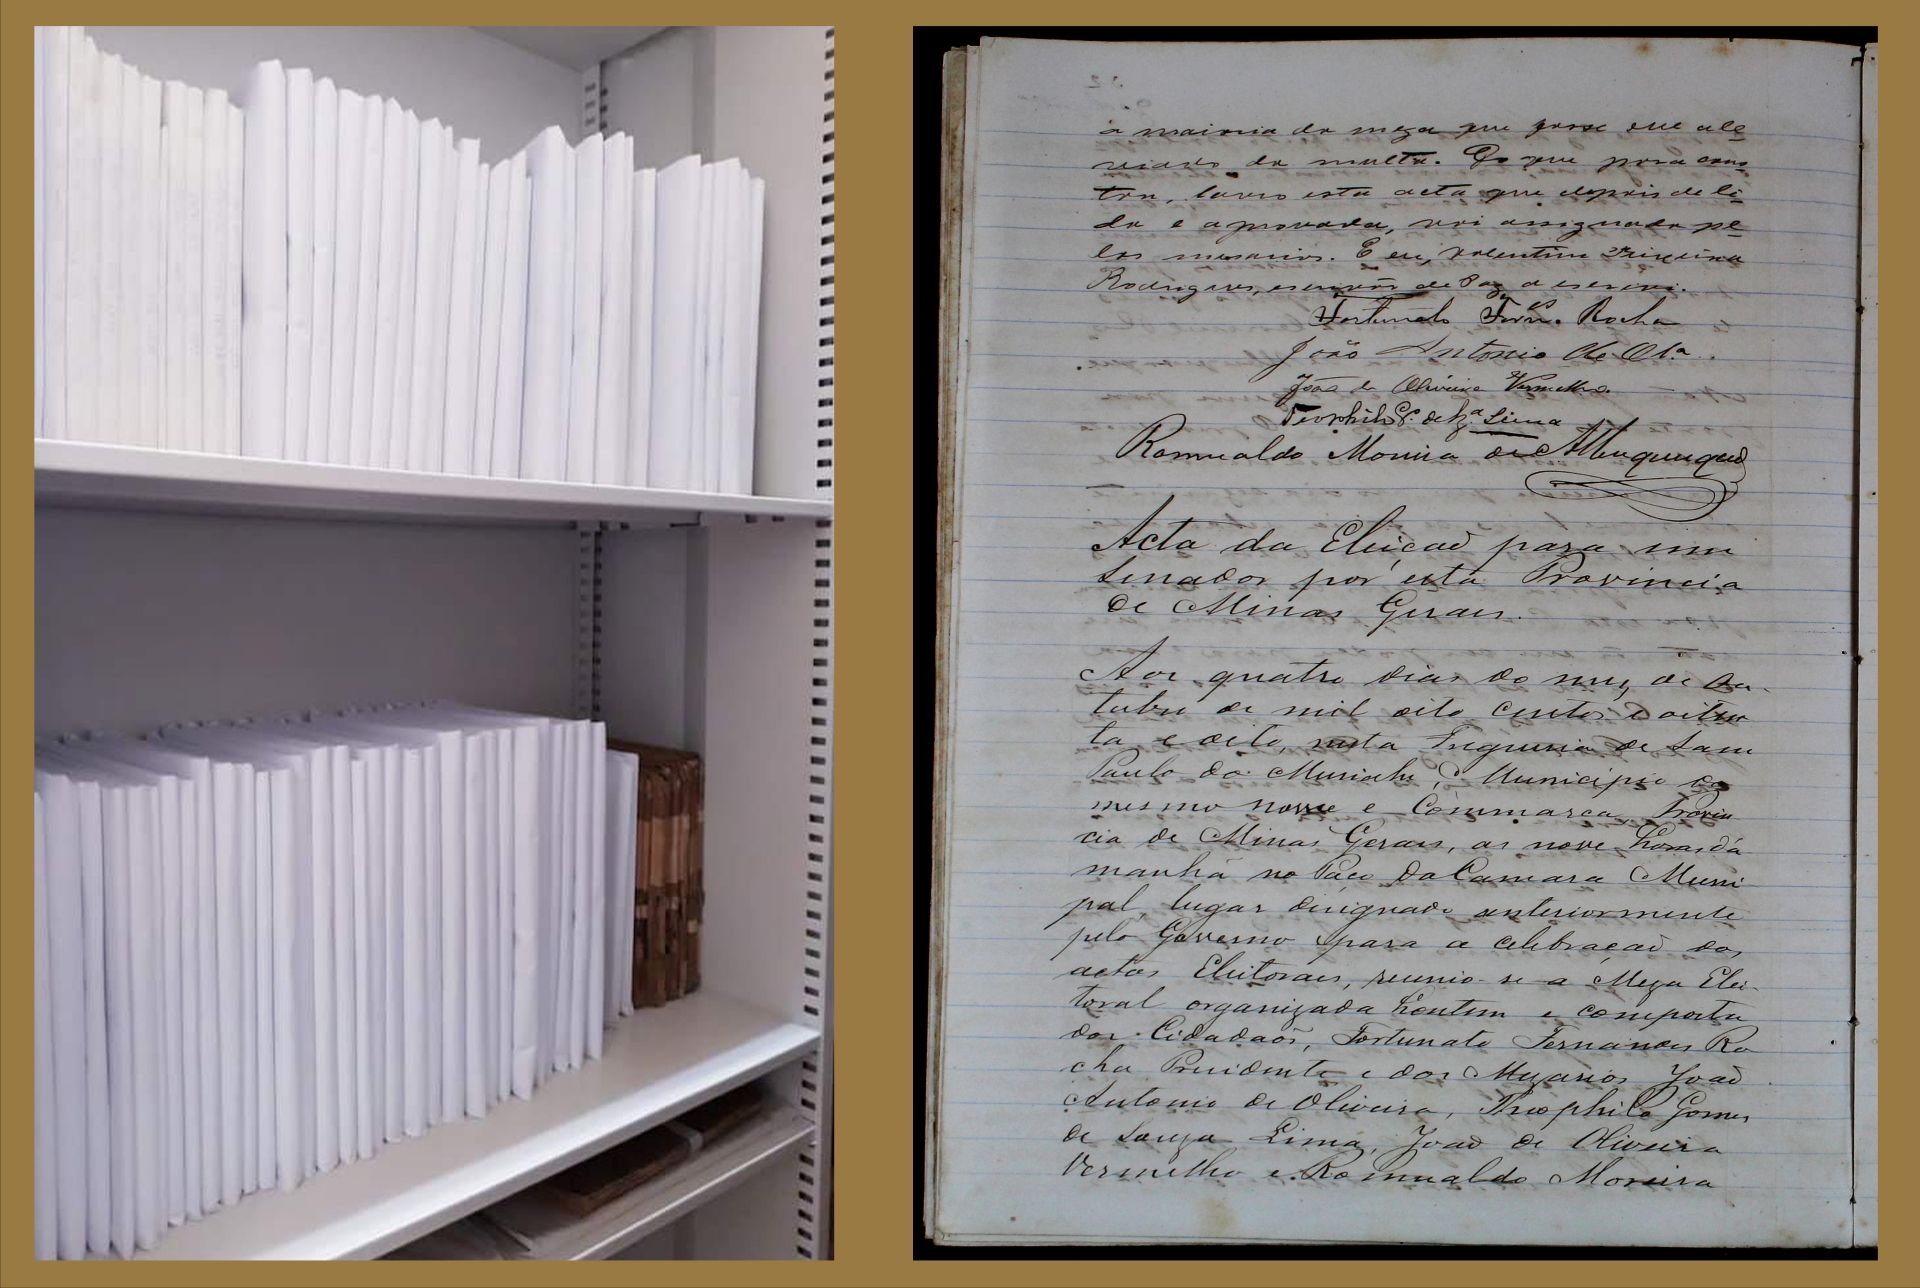 a maioria da meza que fosse elle alle
viado da multa. Do que para cons
tar, lavro esta acta que depois de li
da e aprovada, vai assignada pe
los mesarios. E eu, Valentim Teixeira
Rodrigues, escrivão de Paz a escrevi.
Fortunato Fern.es Rocha
João Antonio de Olª.
João de Oliveira Vermelho.
Theophilo G. de Sza Lima
Romualdo Moreira de Albuquerque
Acta da Eleiçaõ para um
Senador por esta Provincia
de Minas Geraes.
Aos quatro dias do mez de Ou-
tubro de mil oito centos e oiten
ta e oito, nesta Freguesia de Sam
Paulo do Muriahé, Municipio do
mesmo nome e Commarca, Provin
cia de Minas Geraes, as nove horas da
manhã no Paço da Camara Muni
pal, lugar designado anteriormente
pelo Governo para a celebraçaõ dos
actos Eleitoraes, reunio-se a Meza Elei-
toral organizada hontem e composta
dos Cidadaõs, Fortunato Fernandes Ro
cha Presidente e dos Mezarios Joaõ
Antonio de Oliveira, Theophilo Gomes
de Souza Lima, Joaõ de Oliveira
Vermelho e Romualdo Moreira